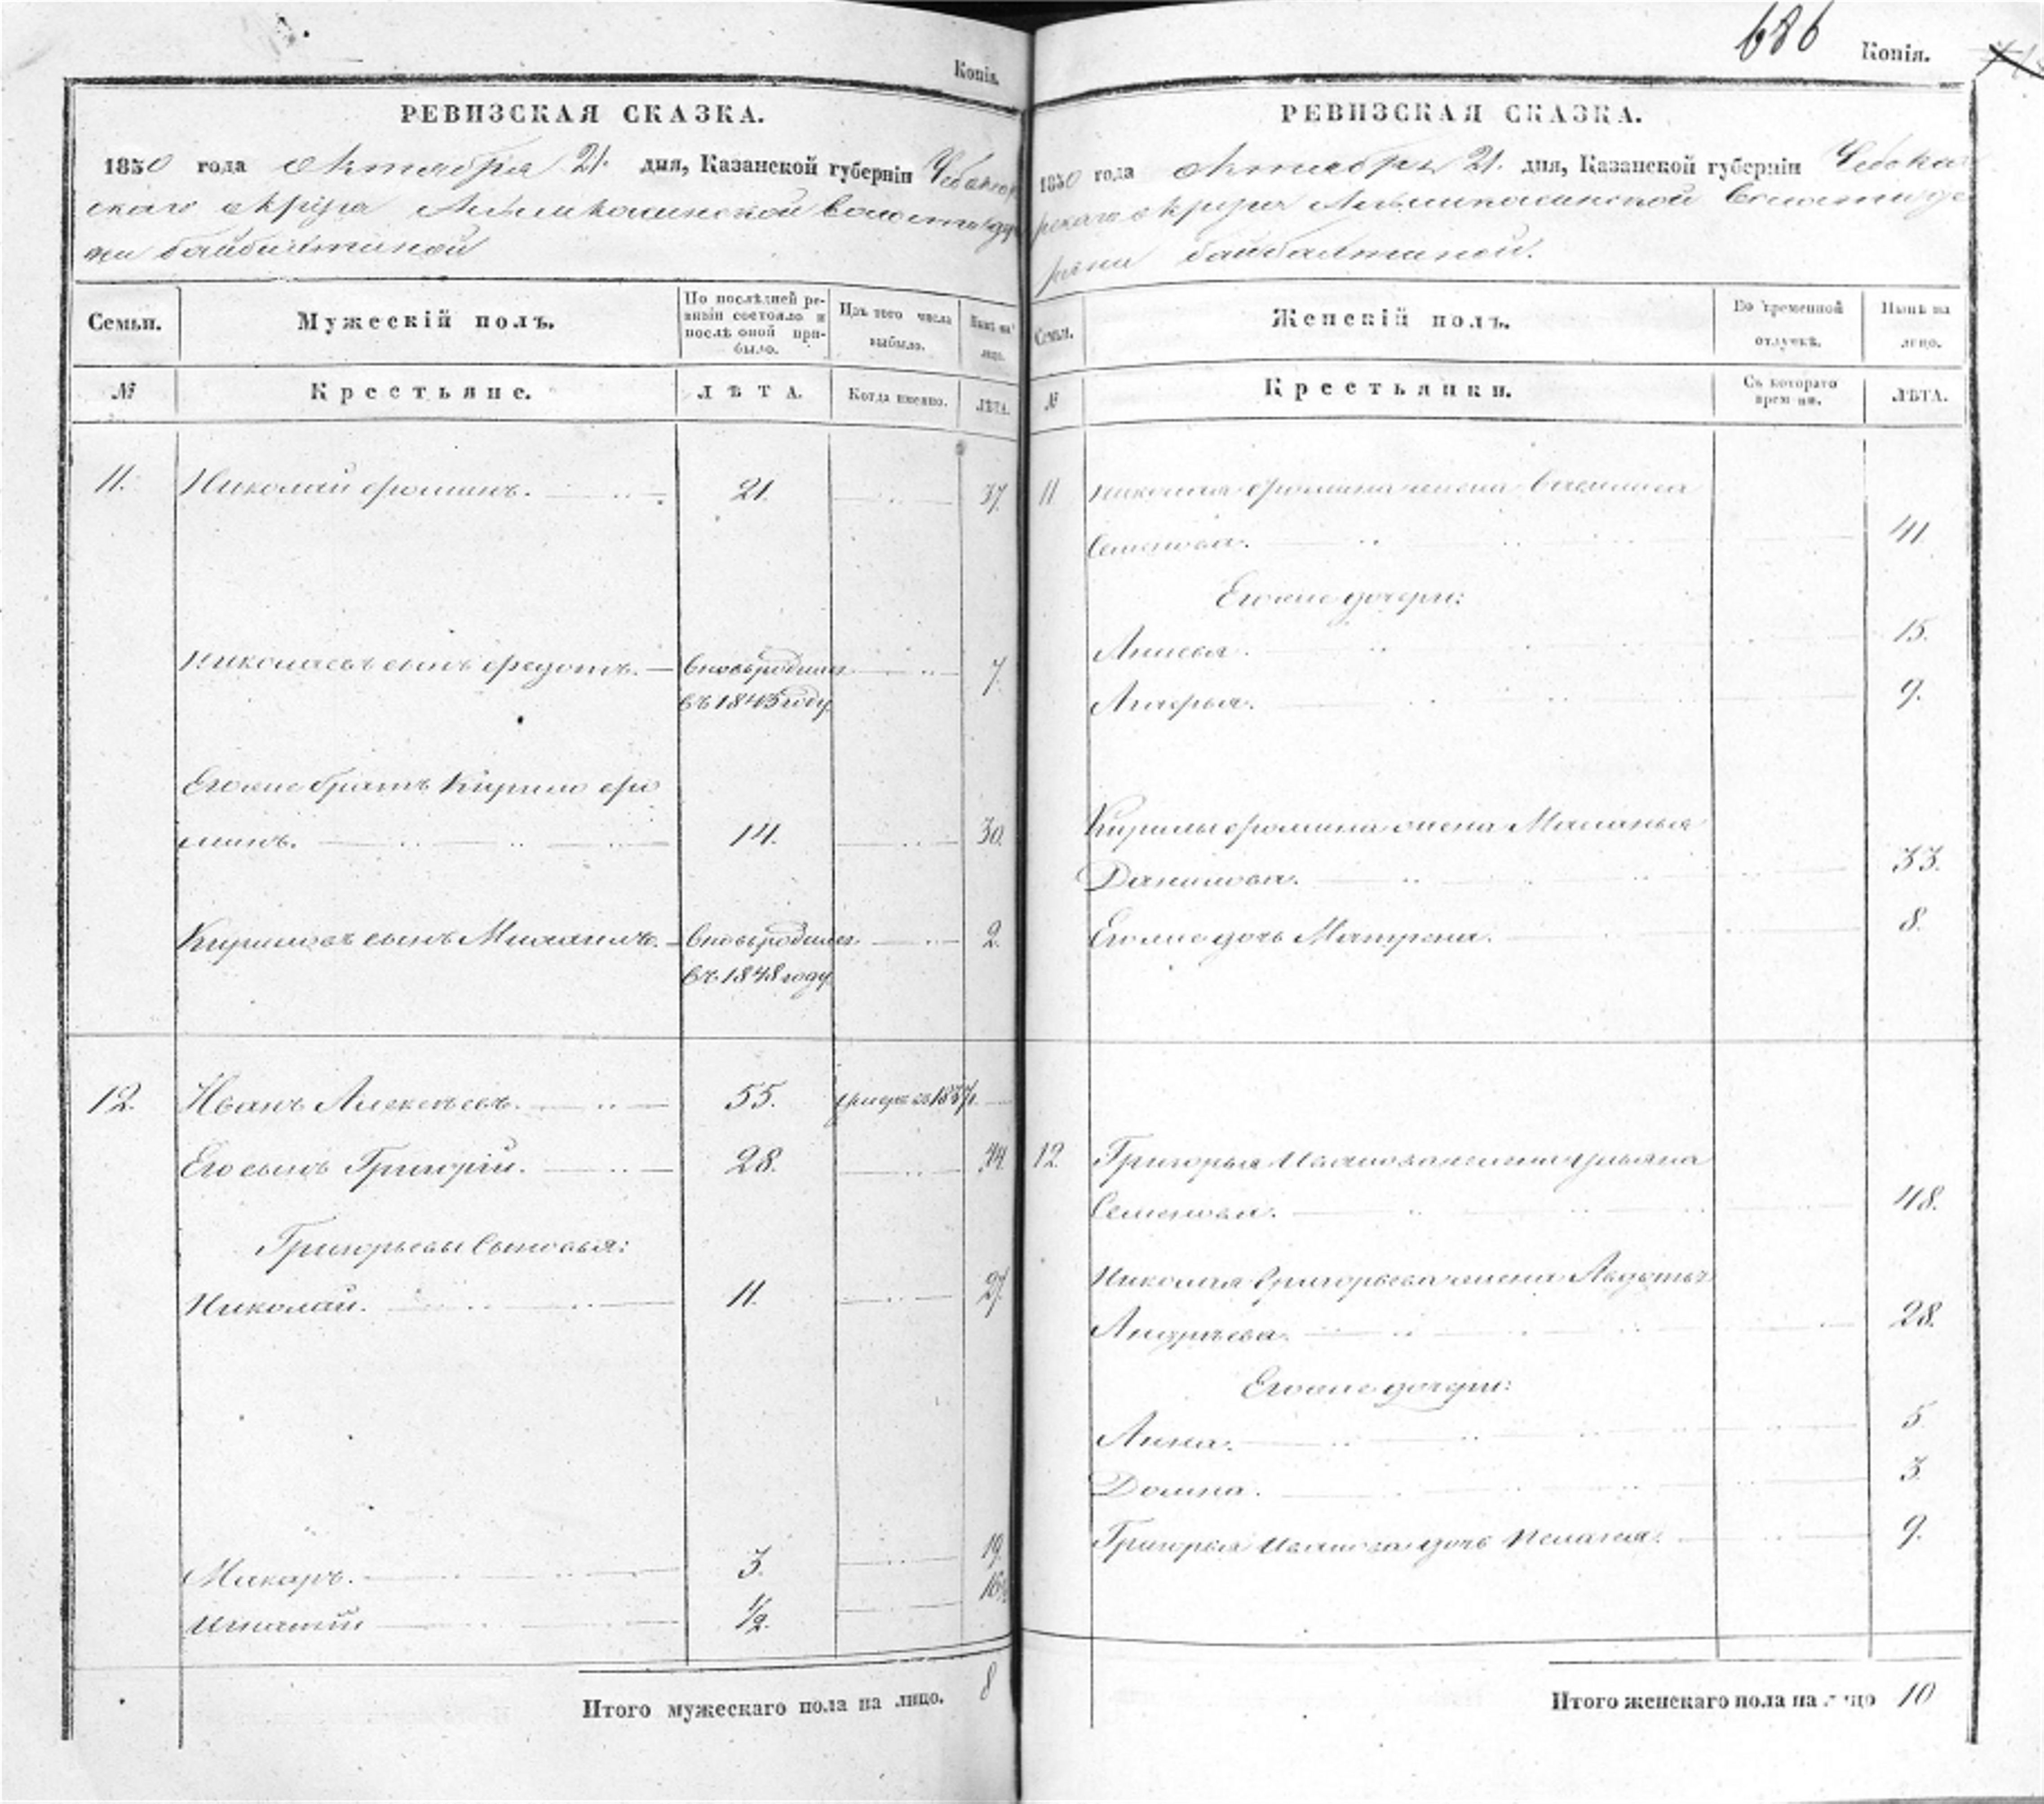 Копія.
РЕВИЗСКАЯ СКАЗКА.
1850 года Октября 21. дня, Казанской губерніи Чебоксар
скаго округа волости дере
вни Байбахтиной
Семьи.
Мужескій полъ.
По послѣдней ре-
визіи состояло и
послѣ оной при-
было.
Изъ того числа
выбыло.
Нынѣ на
лицо.
№
Крестьяне.
ЛѢТА.
Когда именно.
ЛѢТА.
11. Николай Фроминъ. 21. 37.
Николаевъ сынъ Федотъ. вновь родился 7.
въ 1843 году.
Его же братъ Кирило Фро
минъ. 14. 30.
Кириловъ сынъ Михаилъ. вновь родился 2.
въ 1848 году.
12. Иванъ Алексѣевъ. 55. умеръ въ
Его сынъ Григорій. 28. 44.
Григорьевы сыновья:
Николай. 11. 27.
Макаръ. 3. 19.
Игнатій 1/2. 16½
Итого мужескаго пола на лицо. 8
686
Копія.
РЕВИЗСКАЯ СКАЗКА.
1850 года Октября 21. дня, Казанской губерніи Чебокса
рскаго округа волости де
ревни Байбахтиной.
Семьи.
Женскій полъ.
Во временной
отлучкѣ.
Нынѣ на
лицо.
№
Крестьянки.
Съ котораго
времени.
ЛѢТА.
11 Николая Фромина жена
Семенова. 41
Его же дочери:
15.
9.
Кирилы Фромина жена Маланья
Данилова. 33.
Его же дочь Матрена. 8.
12. Григорья Иванова жена Ульяна
Семенова. 48.
Николая Григорьева жена Авдотья
Андреева. 28.
Его же дочери:
Анна. 5
Домна. 3.
Григорья Иванова дочь Пелагея. 9.
Итого женскаго пола на лицо 10